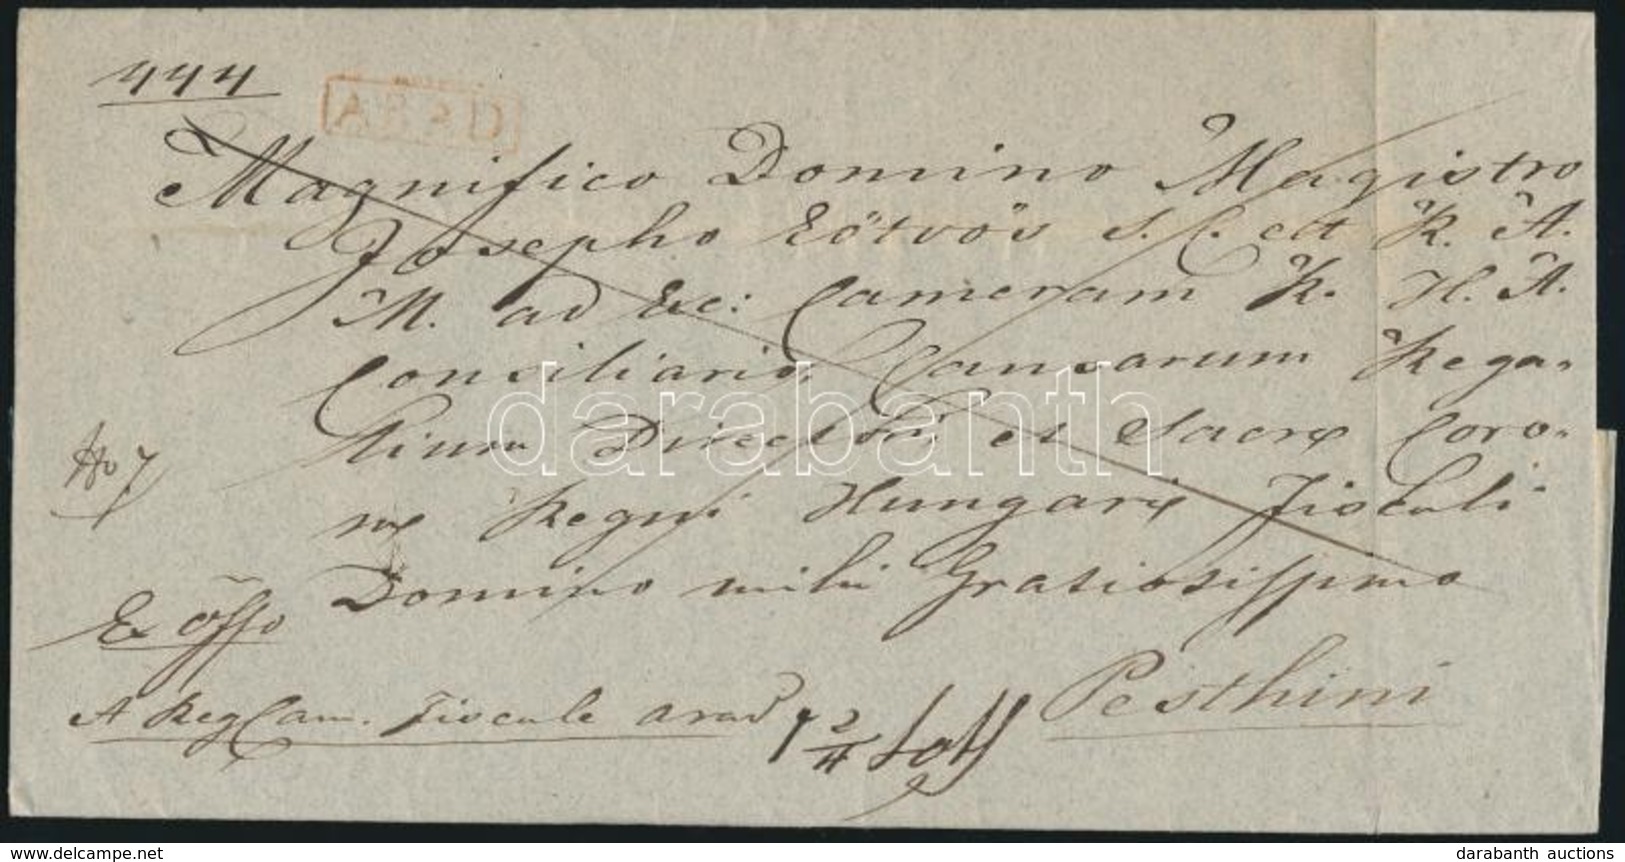 444
ARAD
Magnifico Domino Magistro
Josepho Eötvös S. C. et R. A.
M. ad Exc: Cameram R. H. A.
Consiliario, Causarum Rega-
lium Directori et Sacræ Coro-
næ Regni Hungariæ Fiscali
Domino mihi Gratiosissimo
No 7
Ex offo
A Reg Cam. Fiscale Arad
1 3/4 Loth
Pesthini
darabanth
www.delcampe.net
darabanth auctions